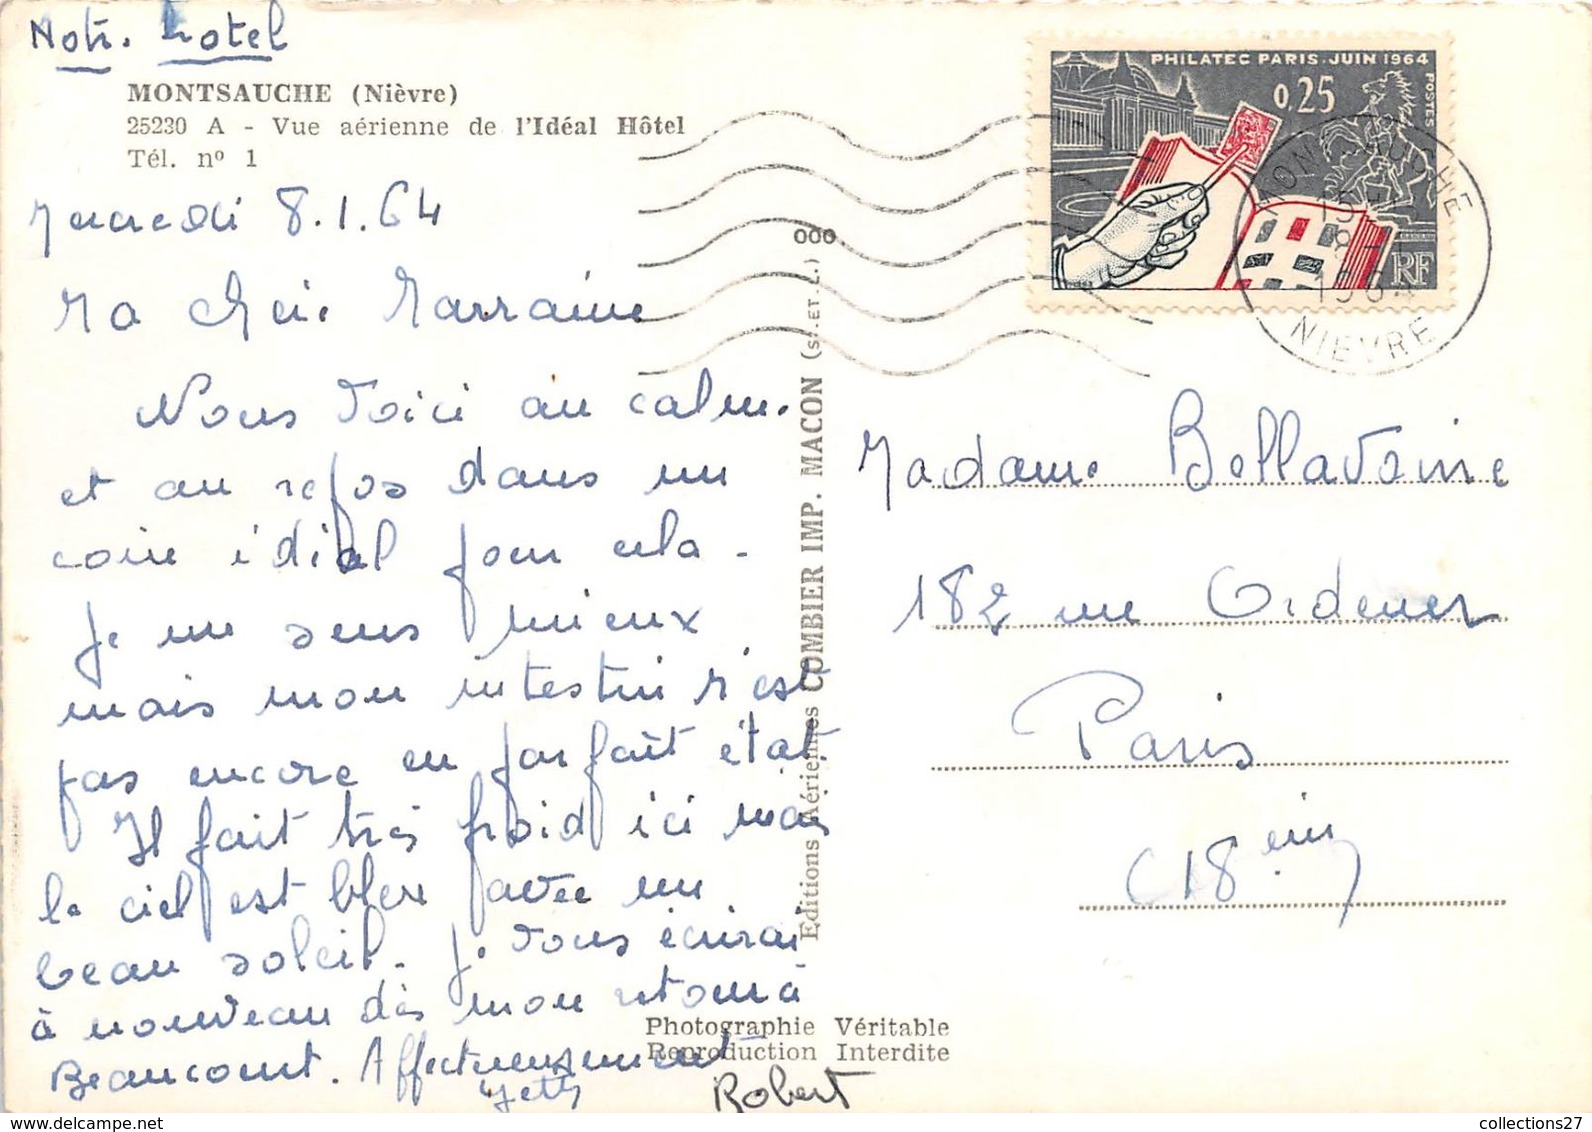 Notre hotel
MONTSAUCHE (Nièvre)
25230 A - Vue aérienne de l'Idéal Hôtel
Tél. nº 1
Mercredi 8.1.64
Ma chère Marraine
Nous voici au calme
et au repos dans un
coin idéal pour cela -
Je me sens mieux
mais mon intestin n'est
pas encore en parfait état
Il fait très froid ici mais
le ciel est bleu avec un
beau soleil. Je vous écrirai
à nouveau dès mon retour à
Beaucourt. Affectueusement
Yetty
Robert
Editions Aériennes COMBIER IMP. MACON (S.-ET-L.)
000
Photographie Véritable
Reproduction Interdite
PHILATEC PARIS . JUIN 1964
0,25
POSTES
RF
1964
NIEVRE
Madame Bellavoine
182 rue Ordener
Paris
(18 eme)
collections27